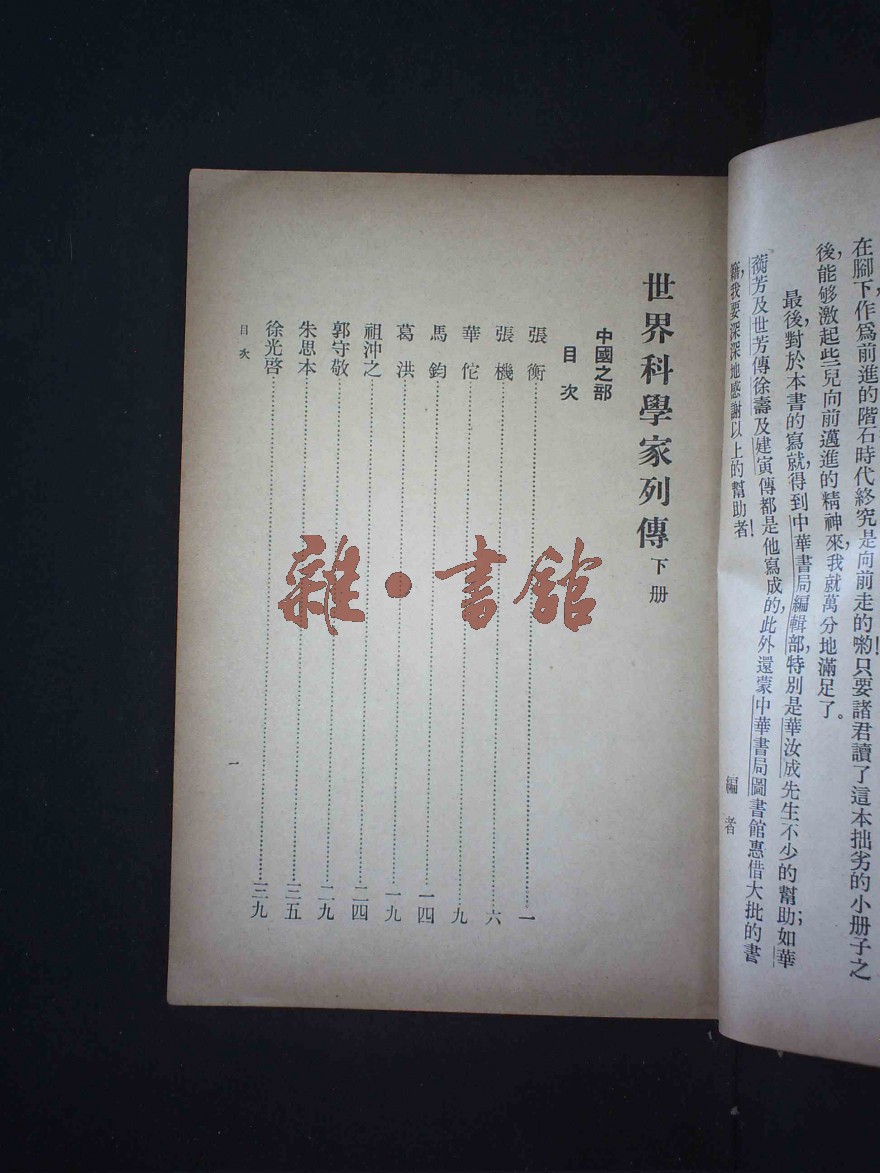 在腳下作爲前進的階石時代終究是向前走的喲!只要諸君讀了這本拙劣的小册子之
後,能够激起些兒向前邁進的精神來,我就萬分地滿足了。
最後,對於本書的寫就,得到中華書局編輯部,特別是華汝成先生不少的幫助;如華
蘅芳及世芳傳徐壽及建寅傳都是他寫成的,此外還蒙中華書局圖書館惠借大批的書
籍,我要深深地感謝以上的幫助者!
編者
世界科學家列傳 下册
中國之部
目次
張衡……一
張機……六
華佗……九
馬鈞……一四
葛洪……一九
祖沖之……二四
郭守敬……二九
朱思本……三五
徐光啓……三九
目次
一
雜·書館